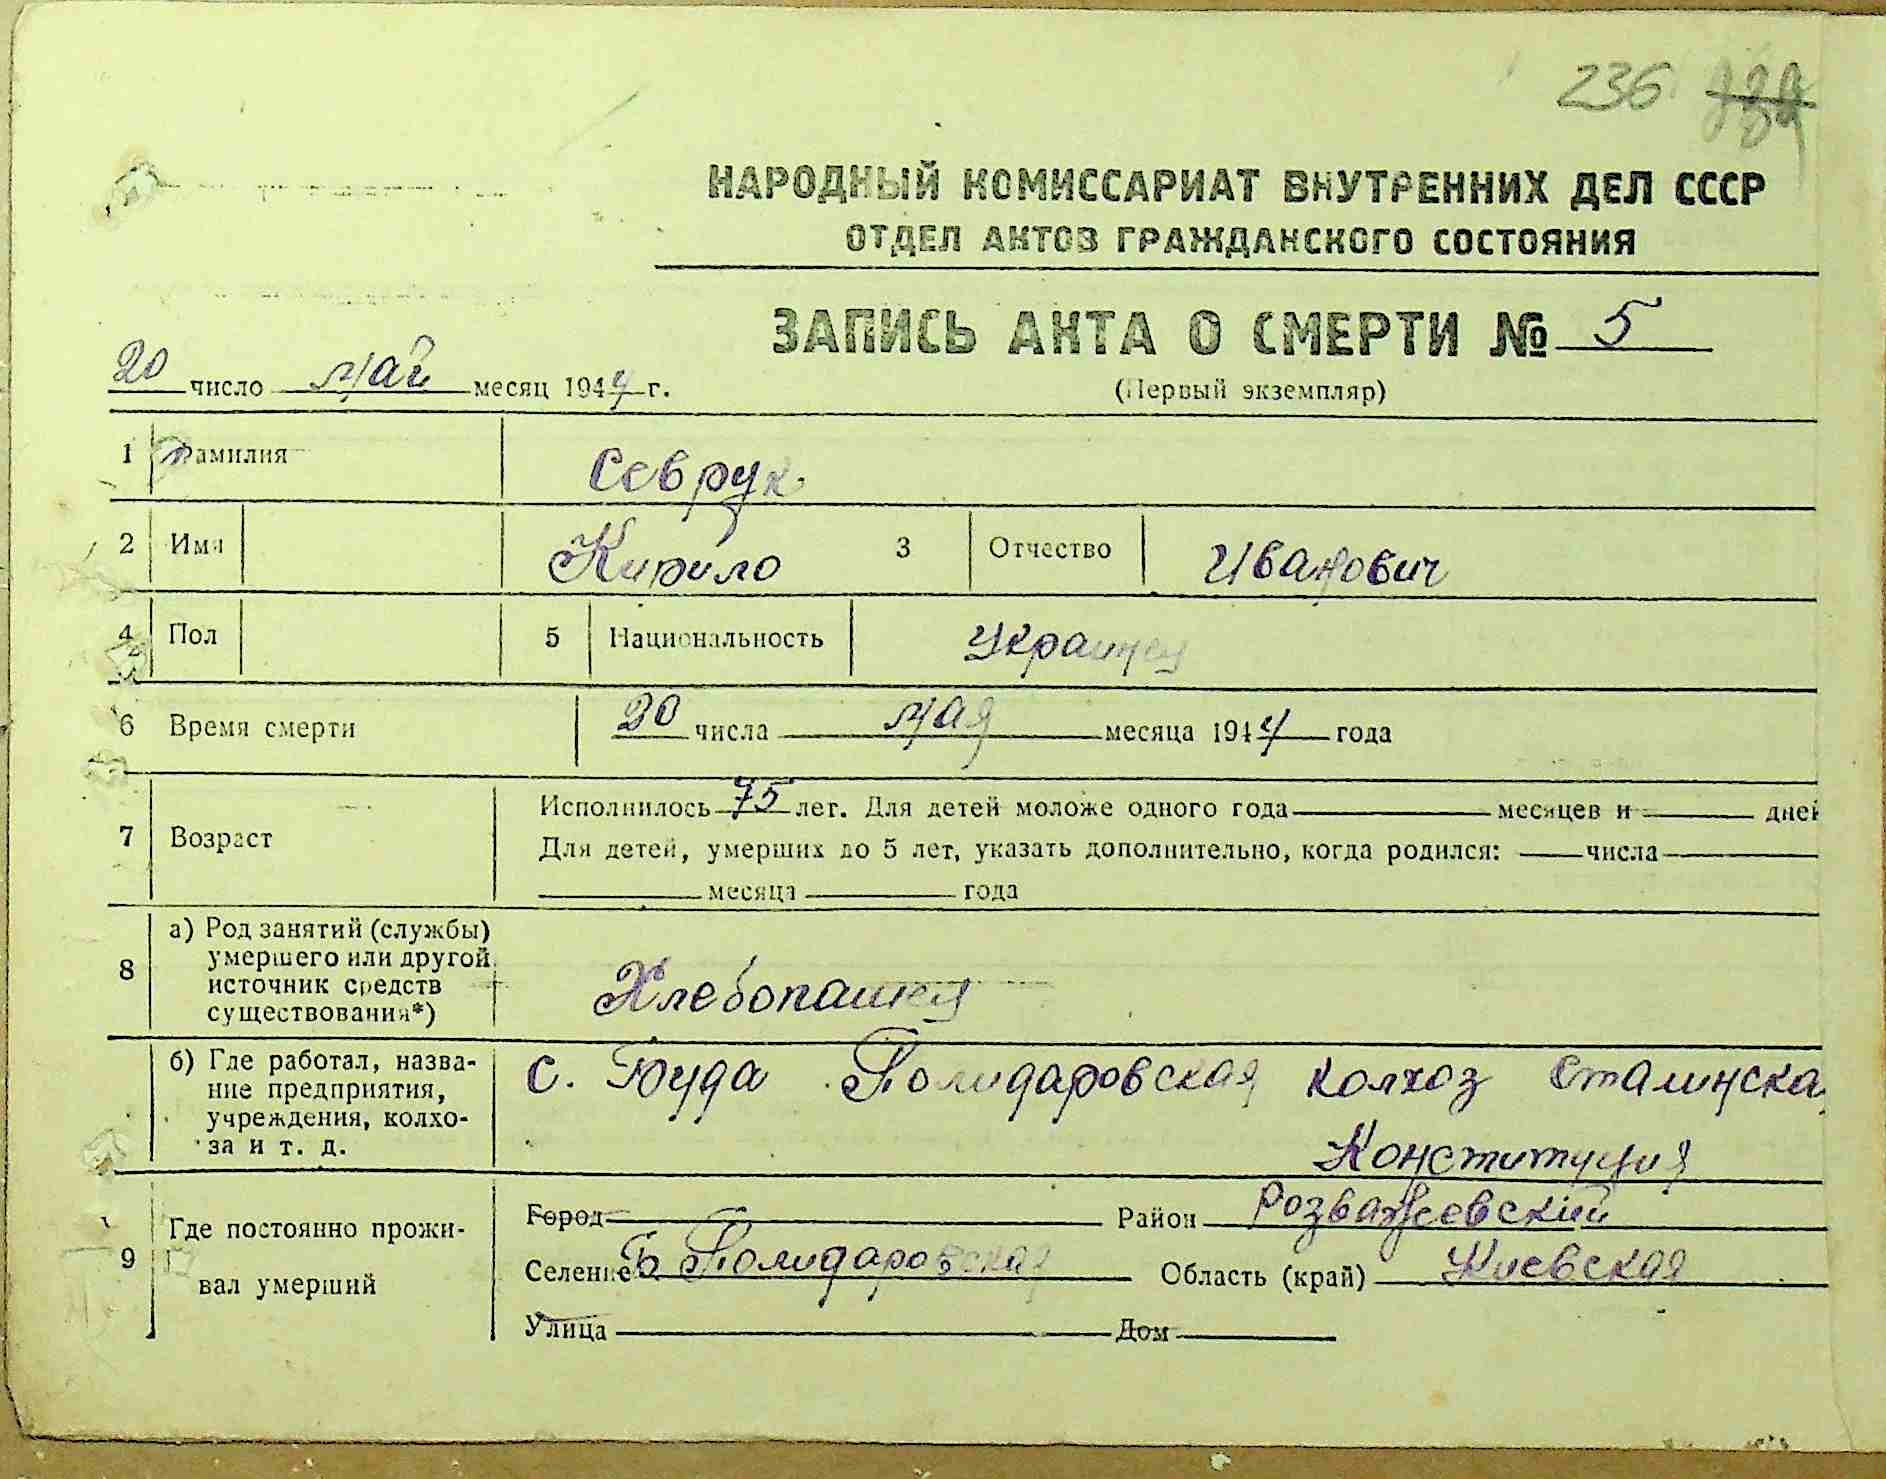 236
НАРОДНЫЙ КОМИССАРИАТ ВНУТРЕННИХ ДЕЛ СССР
ОТДЕЛ АКТОВ ГРАЖДАНСКОГО СОСТОЯНИЯ
ЗАПИСЬ АКТА О СМЕРТИ № 5
20 число май месяц 1944 г.
(Первый экземпляр)
1 Фамилия Севрук
2 Имя Кирило 3 Отчество Иванович
4 Пол 5 Национальность Украинец
6 Время смерти 20 числа мая месяца 1944 года
7 Возраст Исполнилось 75 лет. Для детей моложе одного года месяцев и дней
Для детей, умерших до 5 лет, указать дополнительно, когда родился: числа
месяца года
8 а) Род занятий (службы)
умершего или другой
источник средств
существования*)
Хлебопашец
б) Где работал, назва-
ние предприятия,
учреждения, колхо-
за и т. д.
с. Буда Полидаровская колхоз Сталинска
Конституция
9 Где постоянно прожи-
вал умерший
Город Район Розважевский
Селение Б Полидаровская Область (край) Киевская
Улица Дом